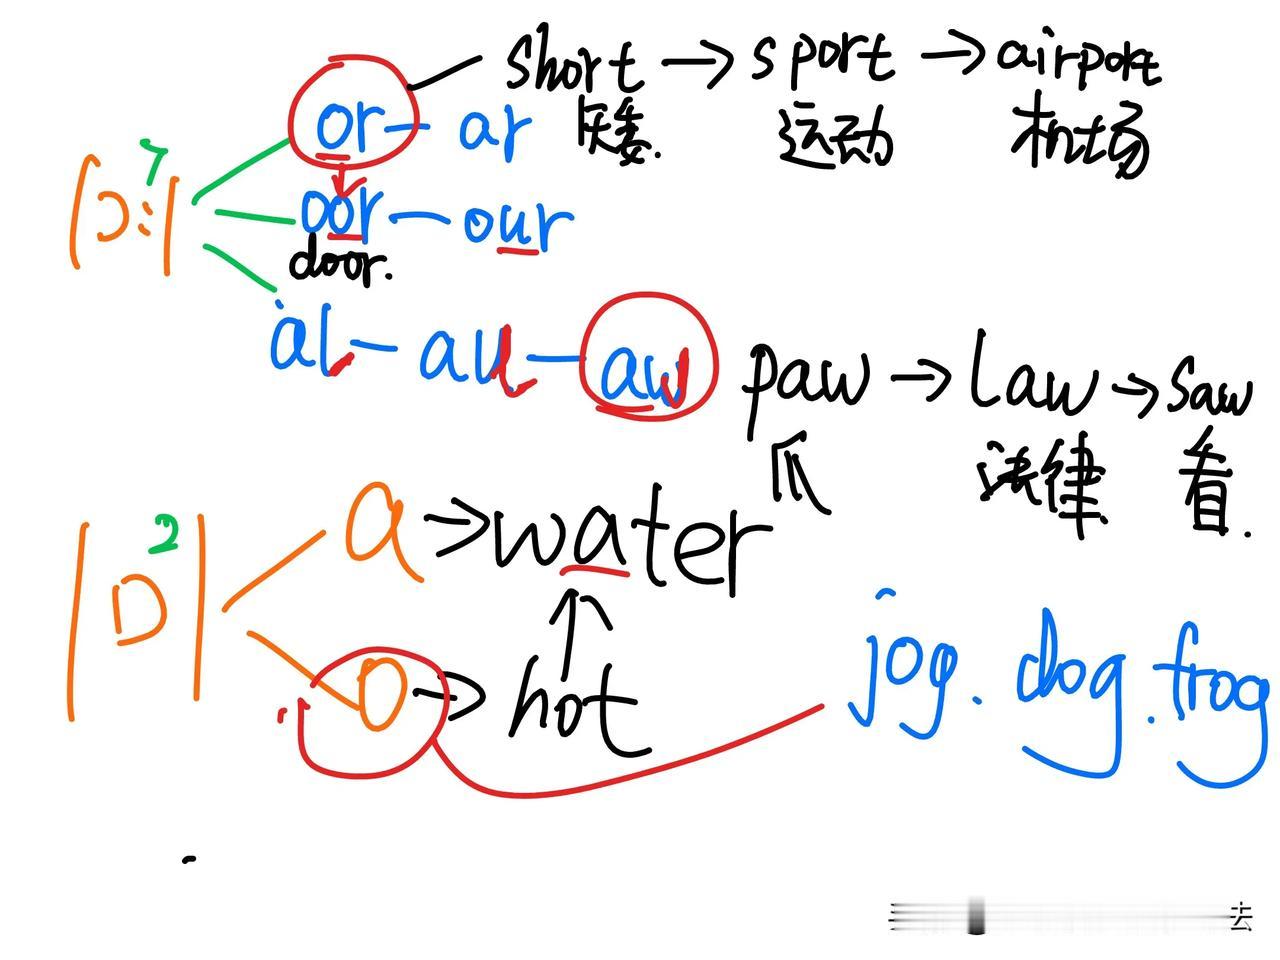 short → sport → airport
or — ar 矮 运动 机场
7
/ɔ:/
oor — our
door.
al — au — aw paw → law → saw
爪 法律 看.
2
/ɒ/
a → water
o → hot
jog. dog. frog
去